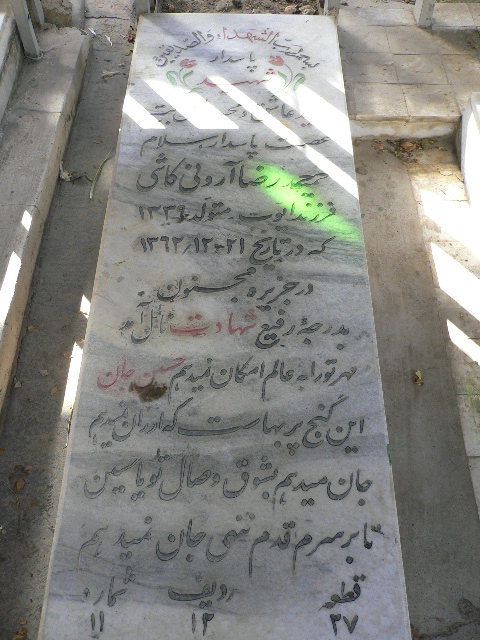 بسم رب الشهداء والصدیقین
پاسدار
شهید
عاشق و
عصمت پاسدار اسلام
رضا آرونی کاشی
فرزند ایوب متولد ۱۳۴۶
که در تاریخ ۱۳۶۲/۱۲/۲۱
در جزیره مجنون
بدرجه رفیع شهادت نائل آمد
مهر تو را به عالم امکان نمیدهم حسین جان
این گنج پر بهاست که ارزان نمیدهم
جان میدهم بشوق وصال تو یا حسین
تا بر سرم قدم ننهی جان نمیدهم
قطعه ردیف شماره
۲۷ ۱۲ ۱۱